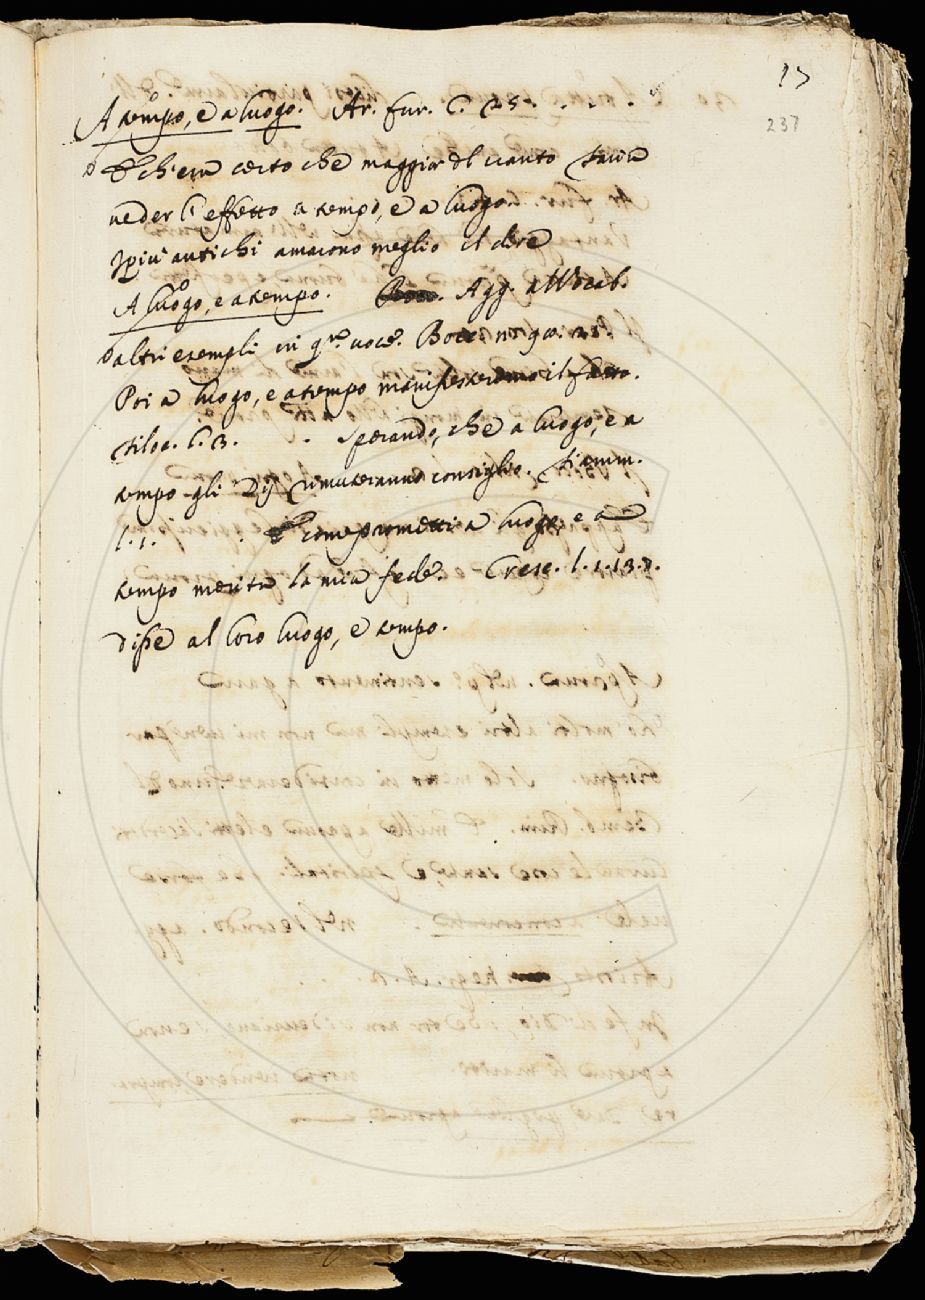 13
237
A tempo, e a luogo. Ar. fur. C. 25. . . .
E ch'era certo che maggior del vanto faria
veder l'effetto a tempo, e a luogo.
I più antichi amarono meglio il dire
A luogo, e a tempo. Agg. al Vocab.
altri esempli in qta. voce. Bocc. nov. 98.
Poi a luogo, e a tempo manifesteremo il fatto.
Filoc. l. 3. . Sperando, che a luogo, e a
tempo gli Dij rimuteranno consiglio. Fiamm.
l. 1. . E come promessi a luogo, e a
tempo merita la mia fede. Cresc. l. 1. 13. 7.
disse al loro luogo, e tempo.